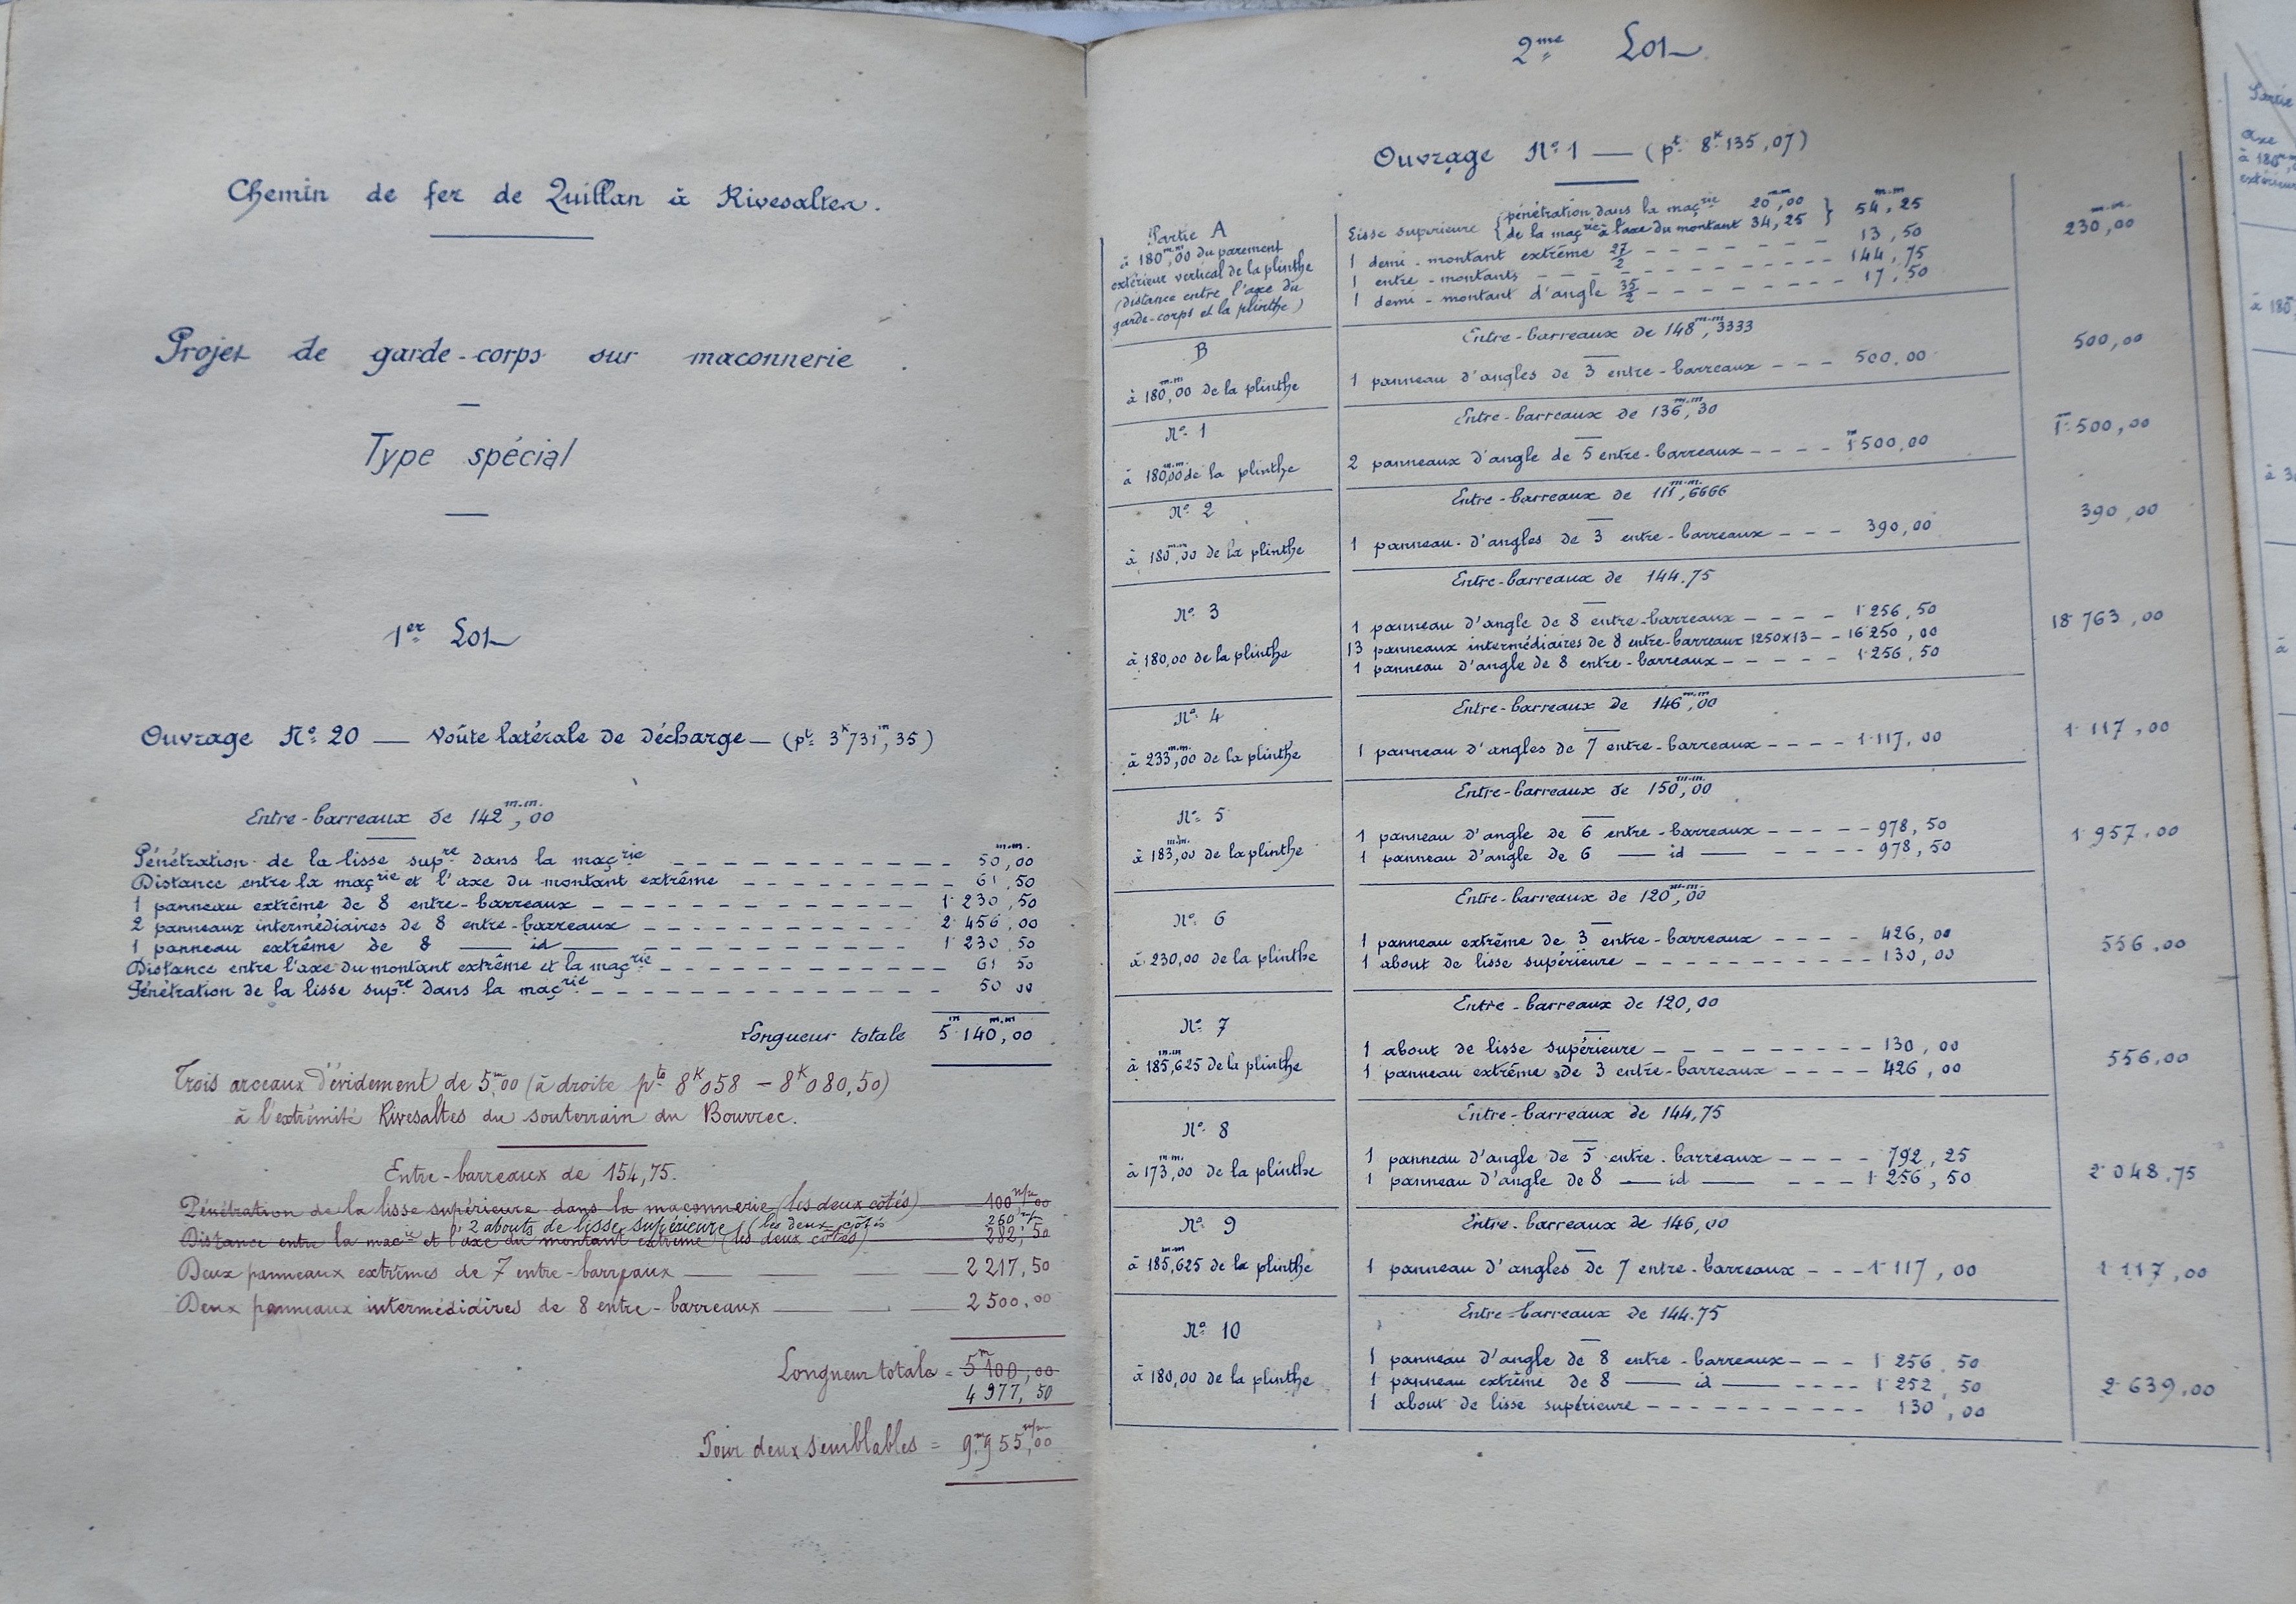 Chemin de fer de Quillan à Rivesaltes.
Projet de garde-corps sur maconnerie
Type spécial
1er Lot
Ouvrage No 20 — Voûte latérale de décharge — (pt 3k731m,35)
Entre-barreaux de 142m.m.,00
Pénétration de la lisse supre dans la maçrie — — — 50m.m.,00
Distance entre la maçrie et l'axe du montant extrême — — — 61,50
1 panneau extrême de 8 entre-barreaux — — — 1.230,50
2 panneaux intermédiaires de 8 entre-barreaux — — — 2.456,00
1 panneau extrême de 8 — id — — — — 1.230,50
Distance entre l'axe du montant extrême et la maçrie — — — 61 50
Pénétration de la lisse supre dans la maçrie — — — 50 00
Longueur totale 5m140m.m.,00
Trois arceaux d'évidement de 5m,00 (à droite pts 8K058 – 8K080,50)
à l'extrémité Rivesaltes du souterrain du Bourrec.
Entre-barreaux de 154,75.
Pénétration de la lisse supérieure dans la maconnerie (les deux côtés) — 100m/m00
2 abouts de lisse supérieure (les deux côtés 260m/m
Distance entre la macie et l'axe du montant extrême (les deux côtés) — 282,50
Deux panneaux extrêmes de 7 entre-barreaux — — — 2 217,50
Deux panneaux intermédiaires de 8 entre-barreaux — — 2 500,00
Longueur totale = 5m100,00
4 977,50
Pour deux semblables = 9m955m/m,00
2me Lot
Ouvrage No 1 — (pt 8k135,07)
Partie A
à 180m.m,00 du parement
extérieur vertical de la plinthe
(distance entre l'axe du
garde-corps et la plinthe)
Lisse supérieure { pénétration dans la maçrie 20m.m,00 } 54m.m,25
{ de la maçrie à l'axe du montant 34,25
1 demi-montant extrême 27/2 — — — 13,50
1 entre-montants — — — 144,75
1 demi-montant d'angle 35/2 — — — 17,50
230m.m.,00
B
à 180m.m,00 de la plinthe
Entre-barreaux de 148m.m,3333
1 panneau d'angles de 3 entre-barreaux — — — 500,00
500,00
No 1
à 180m.m,00 de la plinthe
Entre-barreaux de 136m.m,30
2 panneaux d'angle de 5 entre-barreaux — — — 1m500,00
1m500,00
No 2
à 180m.m,00 de la plinthe
Entre-barreaux de 111m.m.,6666
1 panneau d'angles de 3 entre-barreaux — — — 390,00
390,00
No 3
à 180,00 de la plinthe
Entre-barreaux de 144.75
1 panneau d'angle de 8 entre-barreaux — — — 1.256,50
13 panneaux intermédiaires de 8 entre-barreaux 1250x13 — — 16.250,00
1 panneau d'angle de 8 entre-barreaux — — — 1.256,50
18.763,00
No 4
à 233m.m,00 de la plinthe
Entre-barreaux de 146m.m,00
1 panneau d'angles de 7 entre-barreaux — — — 1.117,00
1.117,00
No 5
à 183m.m,00 de la plinthe
Entre-barreaux de 150m.m.,00
1 panneau d'angle de 6 entre-barreaux — — — 978,50
1 panneau d'angle de 6 — id — — — — 978,50
1.957.00
No 6
à 230,00 de la plinthe
Entre-barreaux de 120m.m.,00
1 panneau extrême de 3 entre-barreaux — — — 426,00
1 about de lisse supérieure — — — 130,00
556.00
No 7
à 185m.m,625 de la plinthe
Entre-barreaux de 120,00
1 about de lisse supérieure — — — 130,00
1 panneau extrême de 3 entre-barreaux — — — 426,00
556,00
No 8
à 173m.m.,00 de la plinthe
Entre-barreaux de 144,75
1 panneau d'angle de 5 entre-barreaux — — — 792,25
1 panneau d'angle de 8 — id — — — — 1.256,50
2.048,75
No 9
à 185m.m,625 de la plinthe
Entre-barreaux de 146,00
1 panneau d'angles de 7 entre-barreaux — — — 1.117,00
1.117,00
No 10
à 180,00 de la plinthe
Entre-barreaux de 144.75
1 panneau d'angle de 8 entre-barreaux — — — 1.256,50
1 panneau extrême de 8 — id — — — — 1.252,50
1 about de lisse supérieure — — — 130,00
2.639,00
Partie
axe